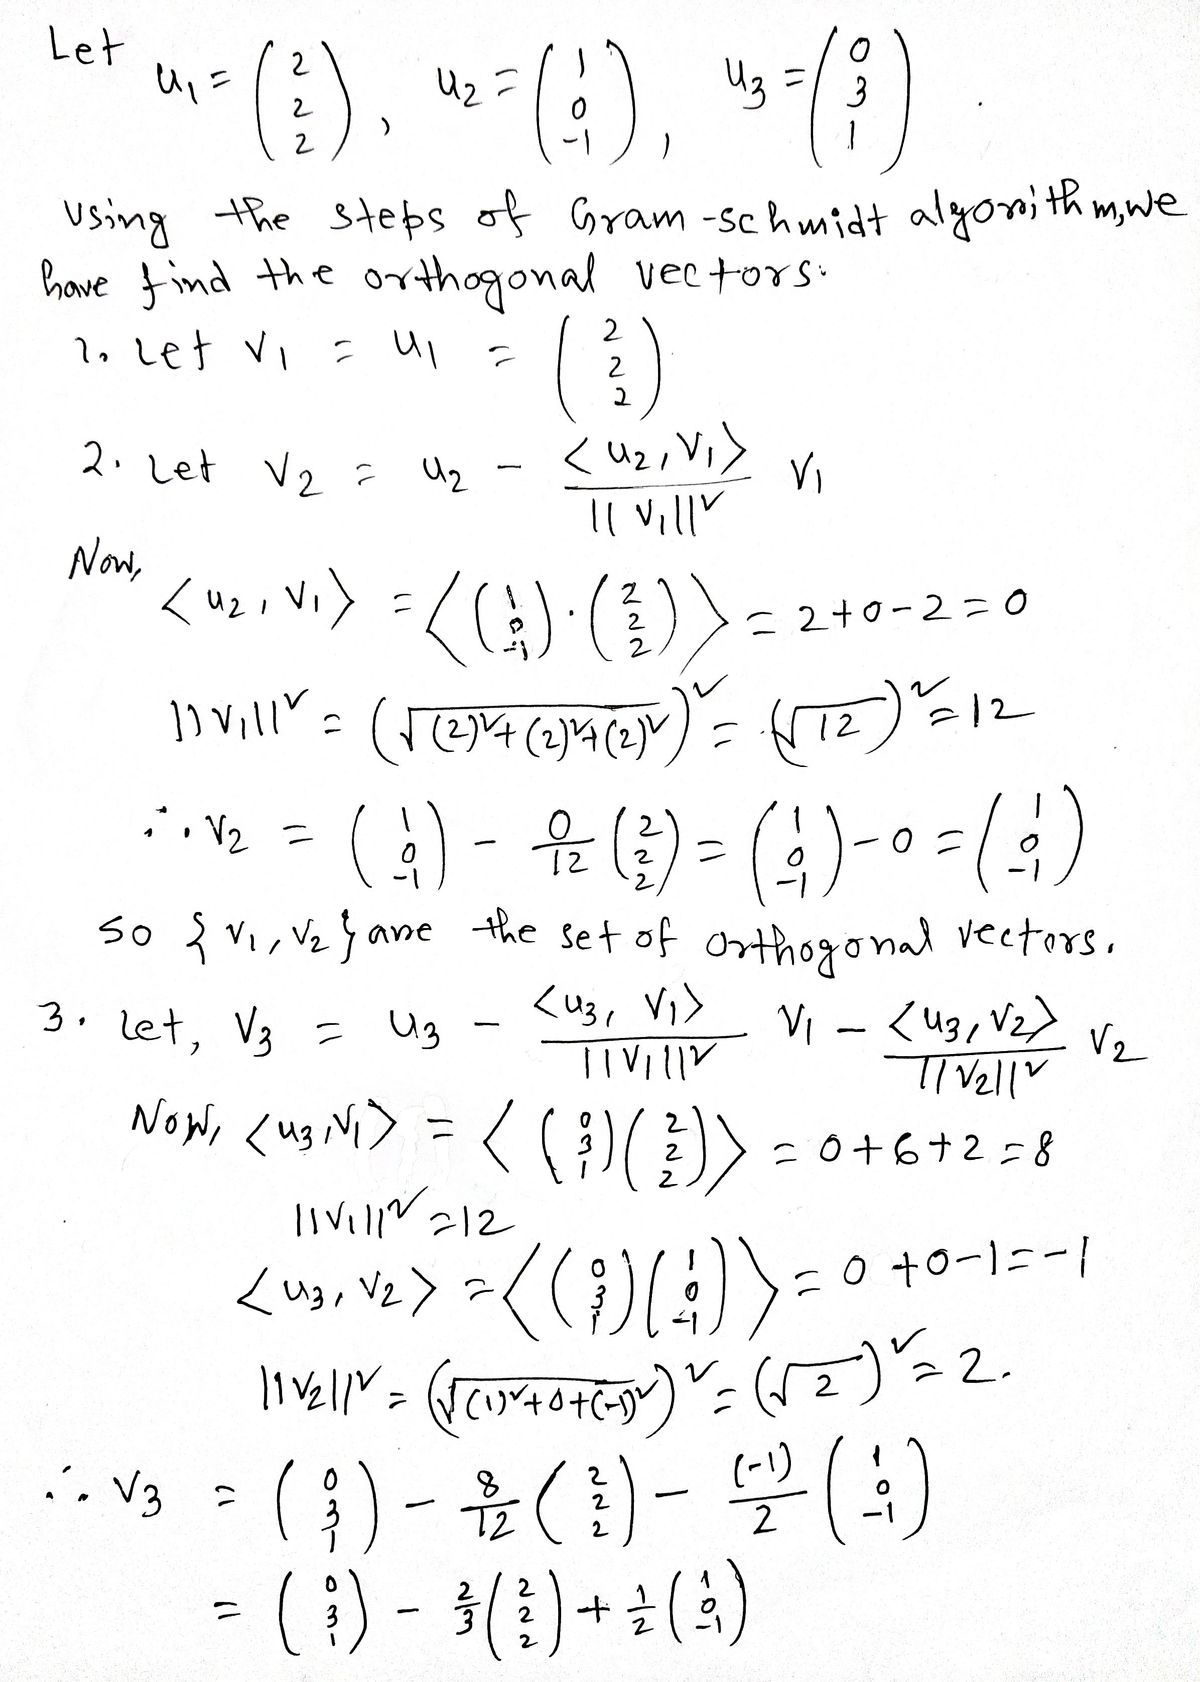 Let u₁ = (2 2 2), u₂ = (1 0 -1), u₃ = (0 3 1).
Using the steps of Gram-schmidt algorithm, we
have find the orthogonal vectors.
1. Let v₁ = u₁ = (2 2 2)
2. Let v₂ = u₂ - <u₂, v₁> / ||v₁||² v₁
Now,
<u₂, v₁> = <(1 0 -1)·(2 2 2)> = 2+0-2=0
||v₁||² = (√((2)²+(2)²+(2)²))² = (√12)² = 12
∴ v₂ = (1 0 -1) - 0/12 (2 2 2) = (1 0 -1) - 0 = (1 0 -1)
so {v₁, v₂} are the set of orthogonal vectors.
3. Let, v₃ = u₃ - <u₃, v₁> / ||v₁||² v₁ - <u₃, v₂> / ||v₂||² v₂
Now, <u₃, v₁> = <(0 3 1)(2 2 2)> = 0+6+2=8
||v₁||² = 12
<u₃, v₂> = <(0 3 1)(1 0 -1)> = 0+0-1=-1
||v₂||² = (√((1)²+0+(-1)²))² = (√2)² = 2.
∴ v₃ = (0 3 1) - 8/12 (2 2 2) - (-1)/2 (1 0 -1)
= (0 3 1) - 2/3 (2 2 2) + 1/2 (1 0 -1)